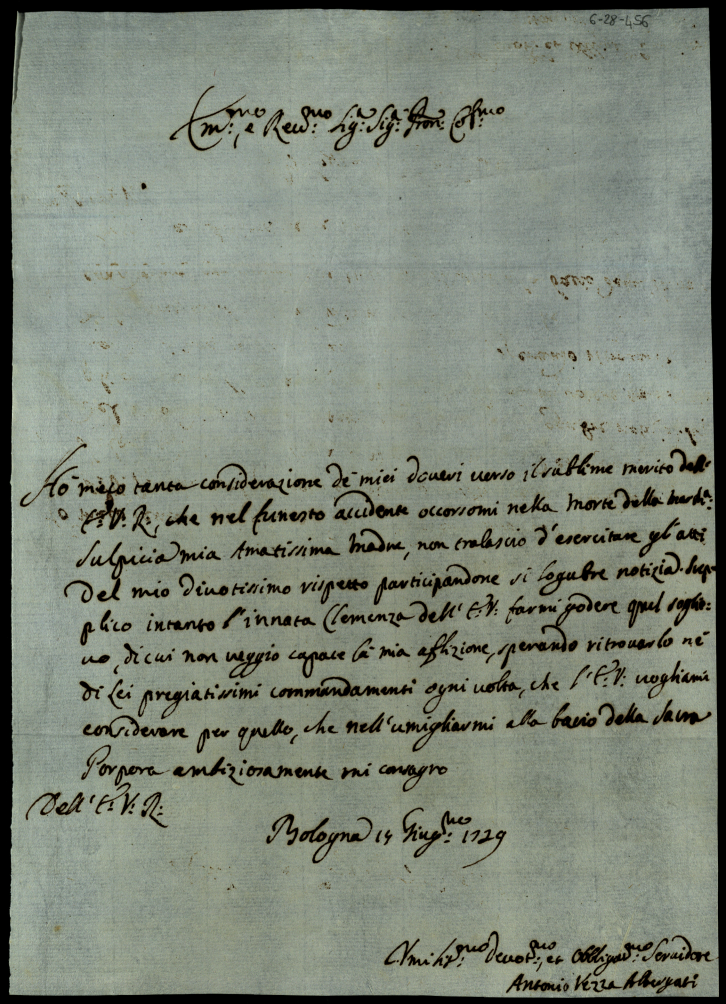 6-28-456
Em:mo e Rev:mo Sig:r Sig:r Pron: Col:mo
Hò meco tanta considerazione de miei doveri verso il sublime merito dell'
E: V: R:, che nel funesto accidente occorsomi nella Morte della March:a
Sulpicia mia Amatissima Madre, non tralascio d'esercitare gl'atti
Del mio divotissimo rispetto participandone si logubre notizia. Sup=
plico intanto l'innata Clemenza dell'E: V: farmi godere quel soglie=
vo, di cui non veggio capace la mia aflizione, sperando ritrovarlo nè
di Lei pregiatissimi commandamenti ogni volta, che l'E: V: vogliami
considerare per quello, che nell'umigliarmi alla bacio della Sacra
Porpora ambiziosamente mi consagro
Dell'E: V: R:
Bologna 15 Giug:no 1729
Vmiliss:mo Devot:mo, et Obbligat:mo Servidore
Antonio Vezza Albergati